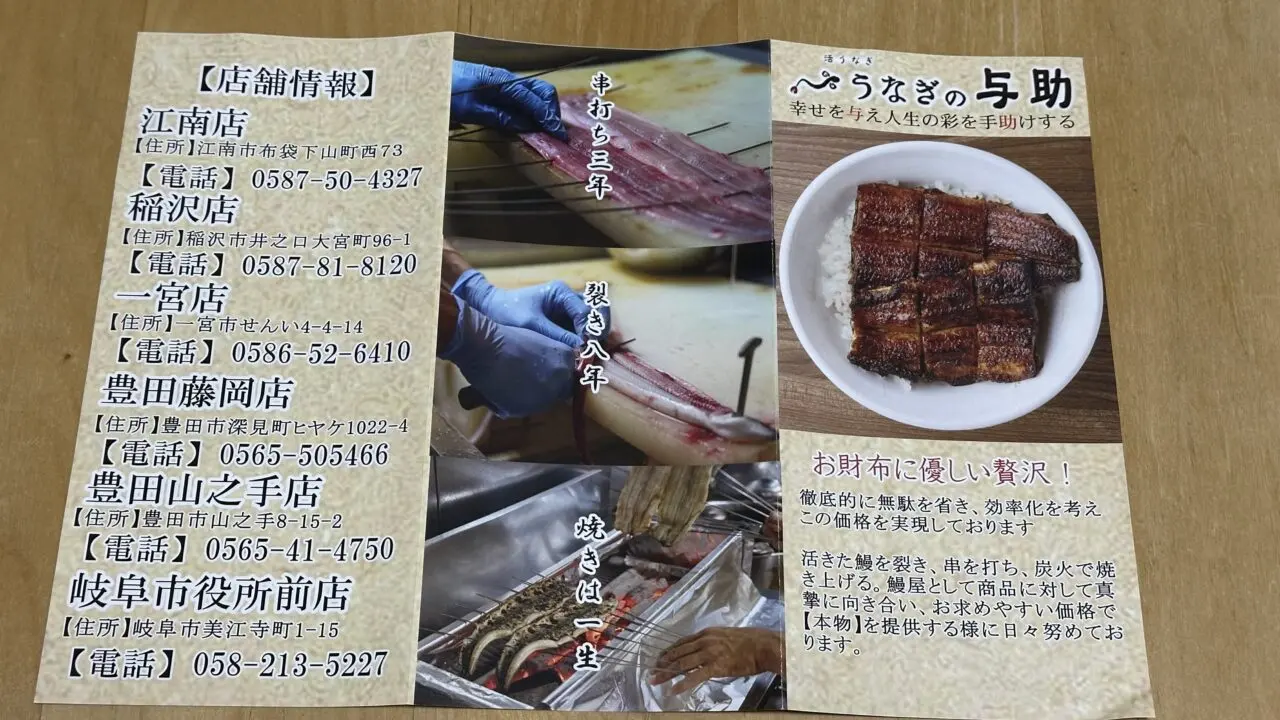 【店舗情報】
江南店
【住所】江南市布袋下山町西73
【電話】 0587-50-4327
稲沢店
【住所】稲沢市井之口大宮町96-1
【電話】 0587-81-8120
一宮店
【住所】一宮市せんい4-4-14
【電話】 0586-52-6410
豊田藤岡店
【住所】豊田市深見町ヒヤケ1022-4
【電話】 0565-505466
豊田山之手店
【住所】豊田市山之手8-15-2
【電話】 0565-41-4750
岐阜市役所前店
【住所】岐阜市美江寺町1-15
【電話】 058-213-5227
串打ち三年
裂き八年
焼きは一生
活うなぎ
うなぎの与助
幸せを与え人生の彩を手助けする
お財布に優しい贅沢！
徹底的に無駄を省き、効率化を考え
この価格を実現しております
活きた鰻を裂き、串を打ち、炭火で焼
き上げる。鰻屋として商品に対して真
摯に向き合い、お求めやすい価格で
【本物】を提供する様に日々努めてお
ります。